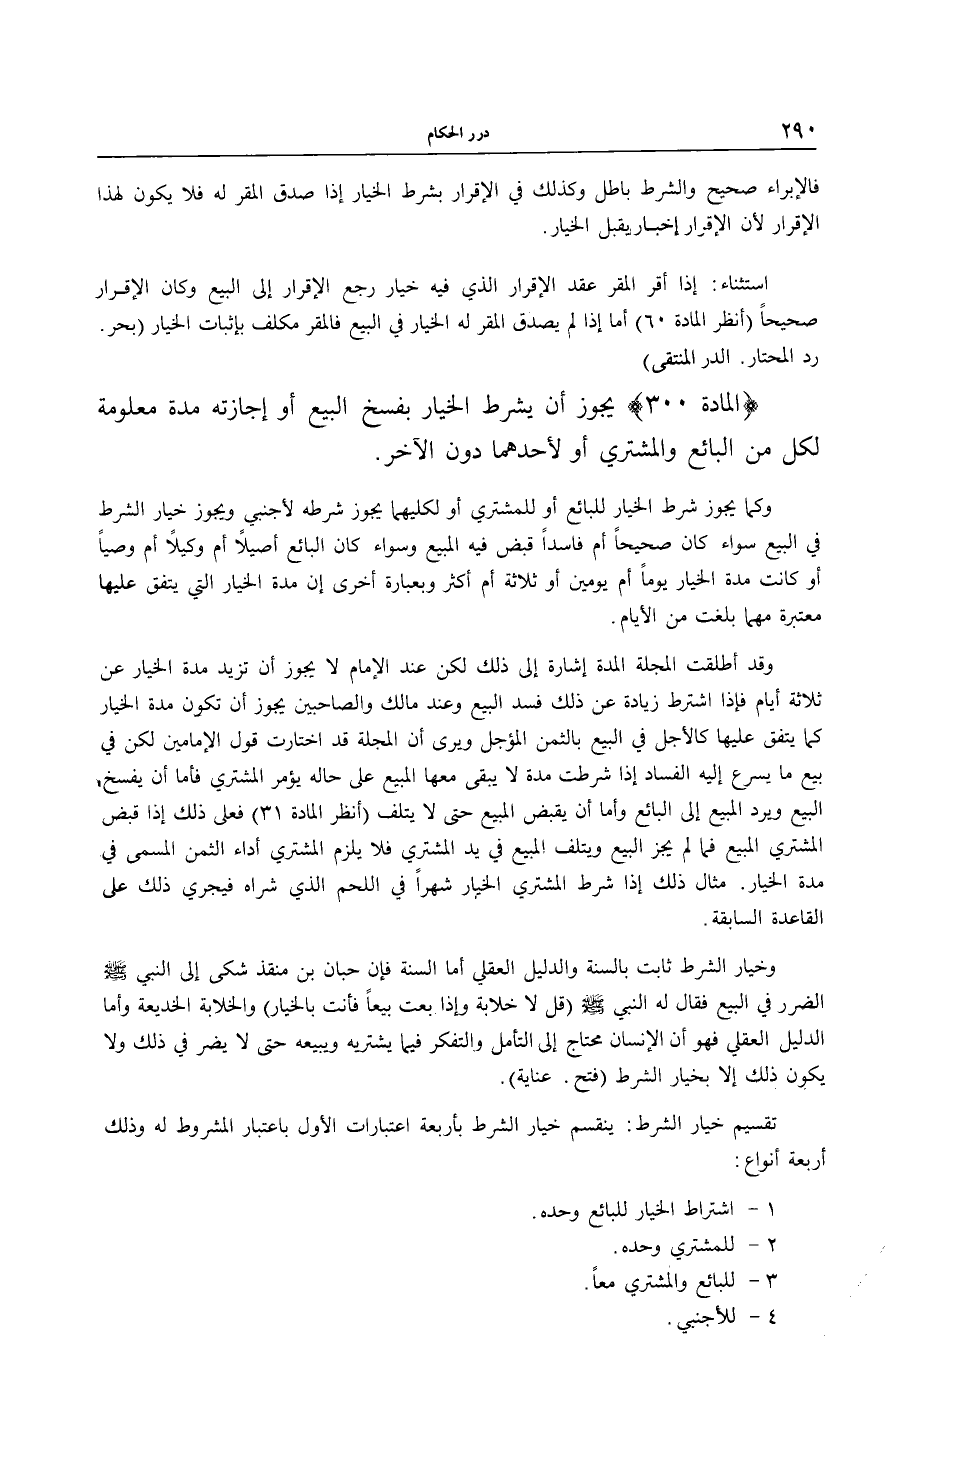 ٢٩٠
درر الحكام
فالإبراء صحيح والشرط باطل وكذلك في الإقرار بشرط الخيار إذا صدق المقر له فلا يكون لهذا
الإقرار لأن الإقرار إخبار يقبل الخيار.
استثناء: إذا أقر المقر عقد الإقرار الذي فيه خيار رجع الإقرار إلى البيع وكان الإقرار
صحيحاً (أنظر المادة ٦٠) أما إذا لم يصدق المقر له الخيار في البيع فالمقر مكلف بإثبات الخيار (بحر.
رد المحتار. الدر المنتقى)
﴿المادة ٣٠٠﴾ يجوز أن يشرط الخيار بفسخ البيع أو إجازته مدة معلومة
لكل من البائع والمشتري أو لأحدهما دون الآخر.
وكما يجوز شرط الخيار للبائع أو للمشتري أو لكليهما يجوز شرطه لأجنبي ويجوز خيار الشرط
في البيع سواء كان صحيحاً أم فاسداً قبض فيه المبيع وسواء كان البائع أصيلاً أم وكيلاً أم وصياً
أو كانت مدة الخيار يوماً أم يومين أو ثلاثة أم أكثر وبعبارة أخرى إن مدة الخيار التي يتفق عليها
معتبرة مهما بلغت من الأيام.
وقد أطلقت المجلة المدة إشارة إلى ذلك لكن عند الإمام لا يجوز أن تزيد مدة الخيار عن
ثلاثة أيام فإذا اشترط زيادة عن ذلك فسد البيع وعند مالك والصاحبين يجوز أن تكون مدة الخيار
كما يتفق عليها كالأجل في البيع بالثمن المؤجل ويرى أن المجلة قد اختارت قول الإمامين لكن في
بيع ما يسرع إليه الفساد إذا شرطت مدة لا يبقى معها المبيع على حاله يؤمر المشتري فأما أن يفسخ
البيع ويرد المبيع إلى البائع وأما أن يقبض المبيع حتى لا يتلف (أنظر المادة ٣١) فعلى ذلك إذا قبض
المشتري المبيع فما لم يجز البيع ويتلف المبيع في يد المشتري فلا يلزم المشتري أداء الثمن المسمى في
مدة الخيار. مثال ذلك إذا شرط المشتري الخيار شهراً في اللحم الذي شراه فيجري ذلك على
القاعدة السابقة.
وخيار الشرط ثابت بالسنة والدليل العقلي أما السنة فإن حبان بن منقذ شكى إلى النبي ﷺ
الضرر في البيع فقال له النبي ﷺ (قل لا خلابة وإذا بعت بيعاً فأنت بالخيار) والخلابة الخديعة وأما
الدليل العقلي فهو أن الإنسان محتاج إلى التأمل والتفكر فيما يشتريه ويبيعه حتى لا يضر في ذلك ولا
يكون ذلك إلا بخيار الشرط (فتح. عناية).
تقسيم خيار الشرط: ينقسم خيار الشرط بأربعة اعتبارات الأول باعتبار المشروط له وذلك
أربعة أنواع:
١ - اشتراط الخيار للبائع وحده.
٢ - للمشتري وحده.
٣ - للبائع والمشتري معاً.
٤ - للأجنبي.